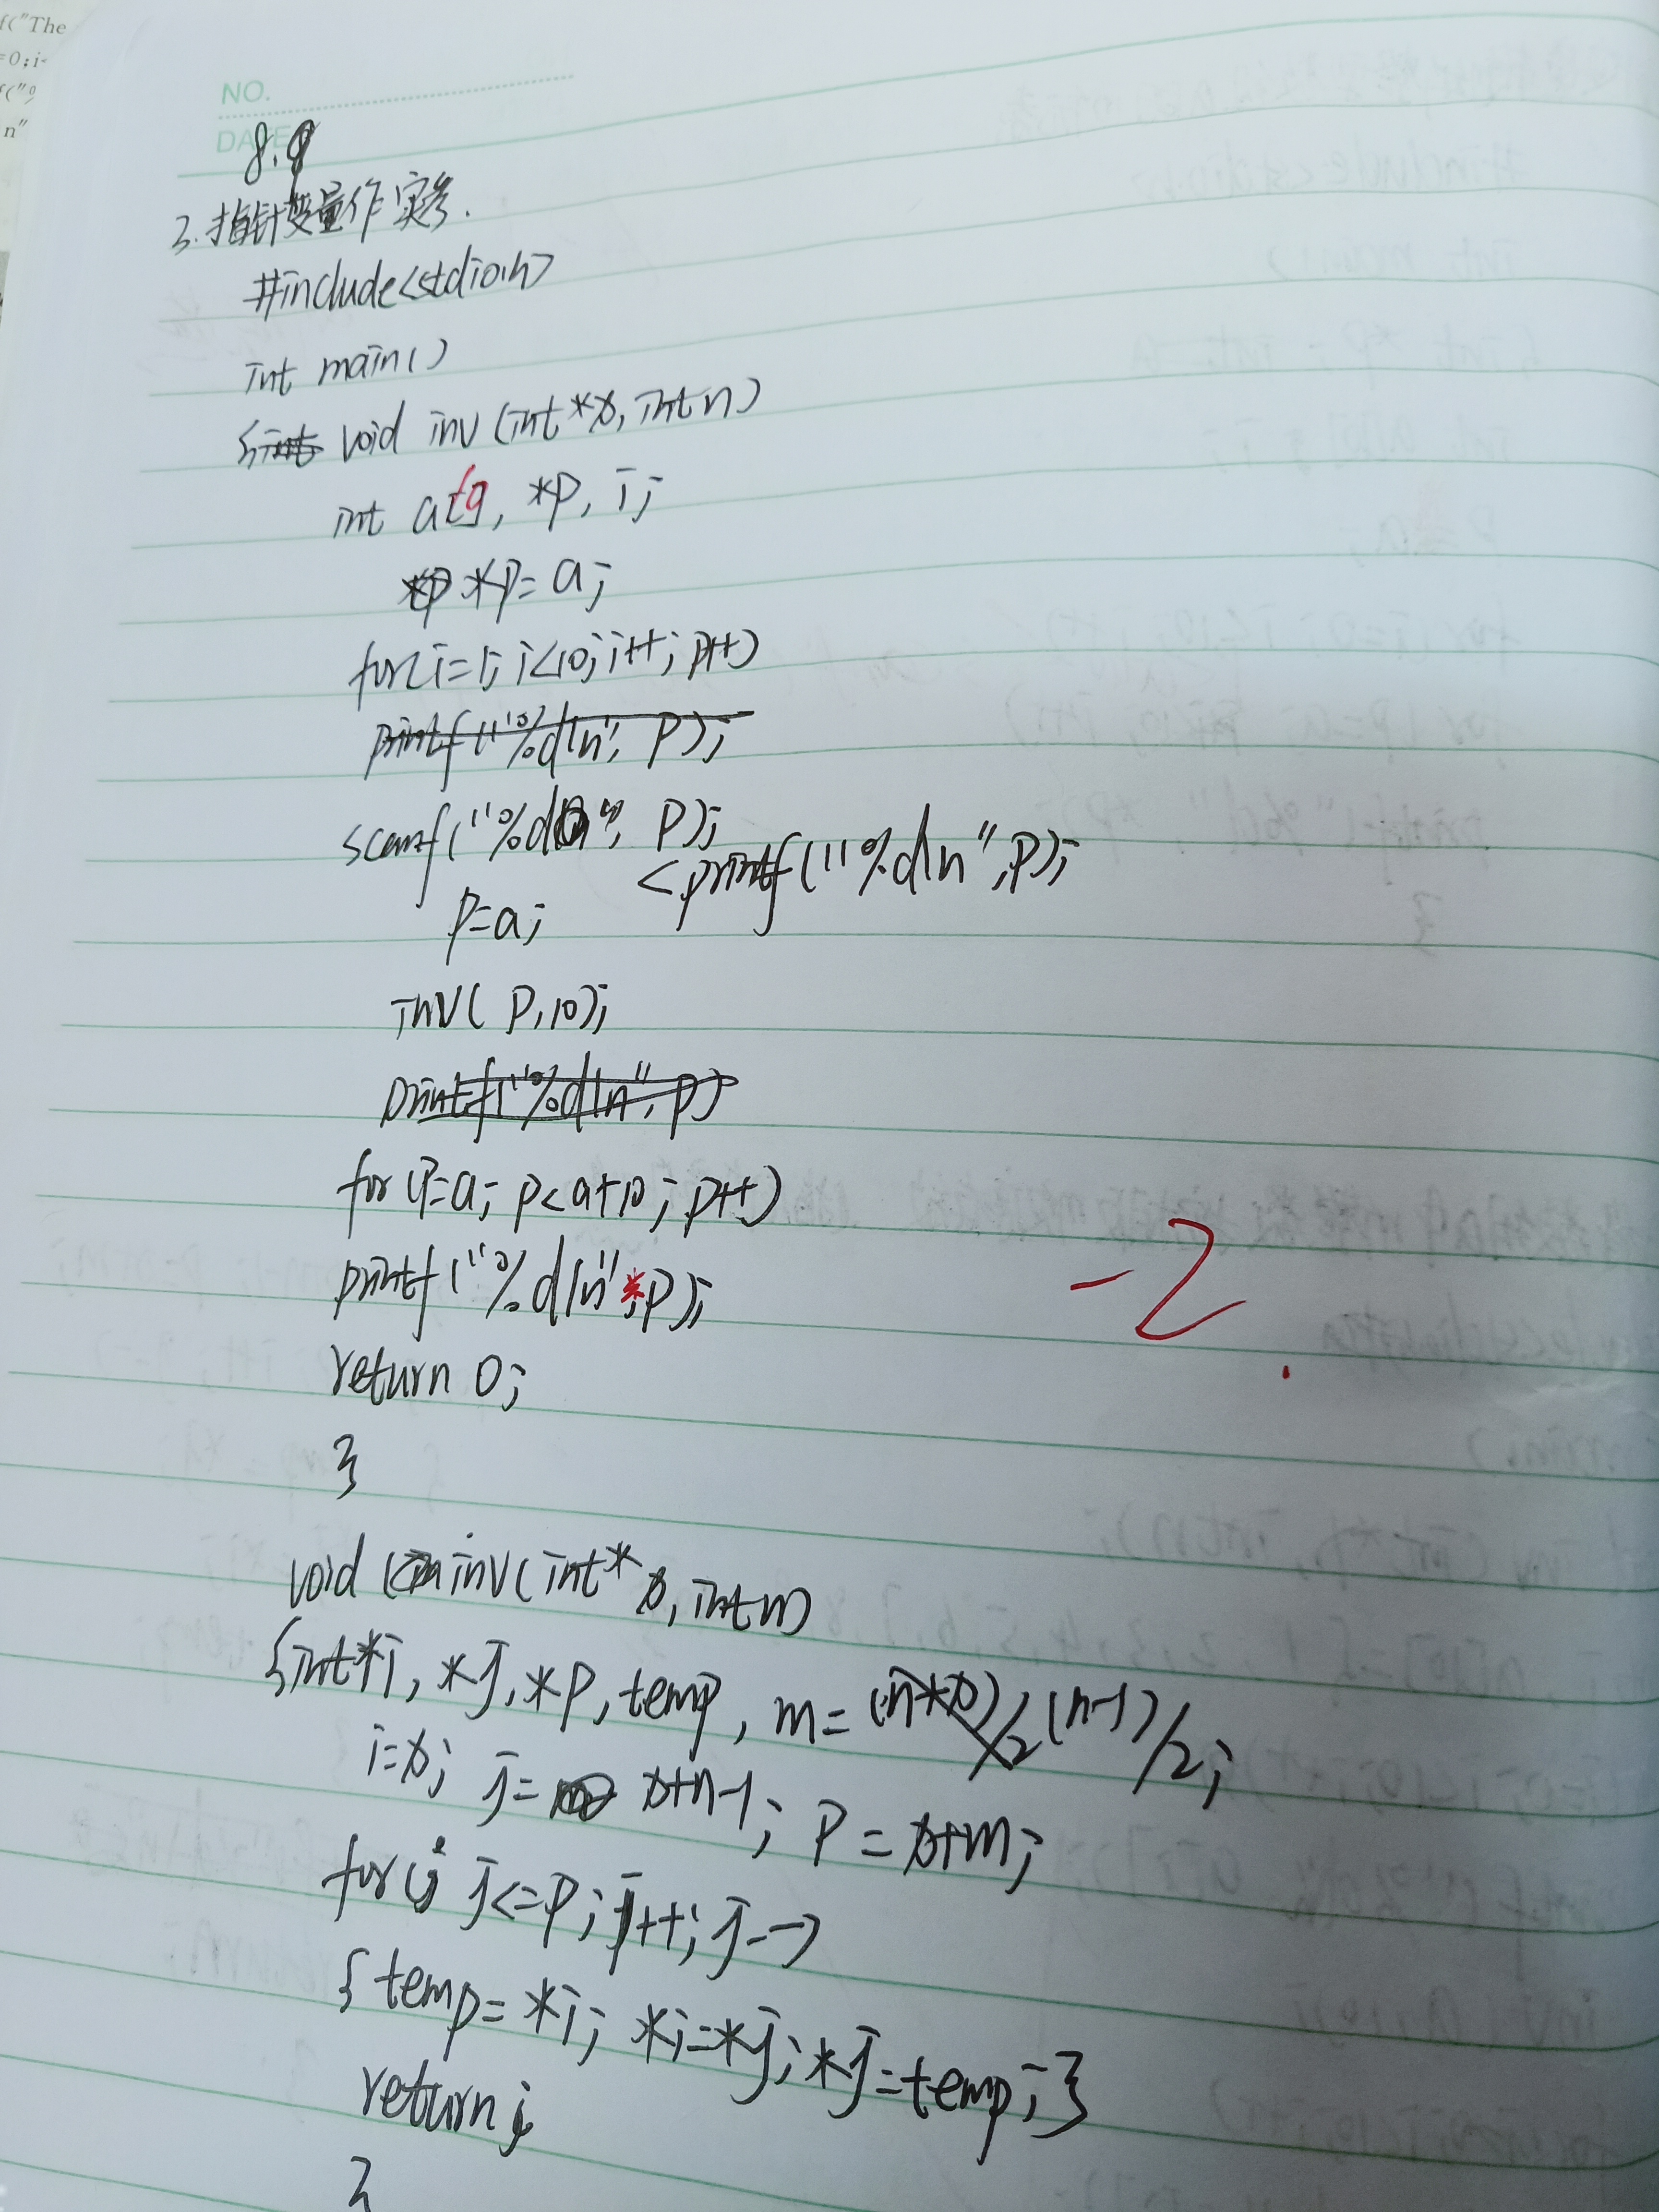 f("The
=0;i<
f("%
n"
NO.
DATE
8.9
3.指针变量作实参.
#include<stdio.h>
int main()
{int void inv (int *x, int n)
int a[], *p, i;
*p *p= a;
for(i=1; i<10; i++; p++)
printf("%d\n", p);
scanf("%d", p);
<printf("%d\n",p);
p=a;
inv( p,10);
printf("%d\n", p)
for (p=a; p<a+10; p++)
printf("%d\n"*p);
-2.
return 0;
}
void inv(int* x, int n)
{int*i, *j, *p, temp, m= (n*x)/2 (n-1)/2;
i=x; j= x+n-1; p = x+m;
for(; j<=p; j++; j--)
{temp= *i; *i=*j; *j=temp;}
return;
}